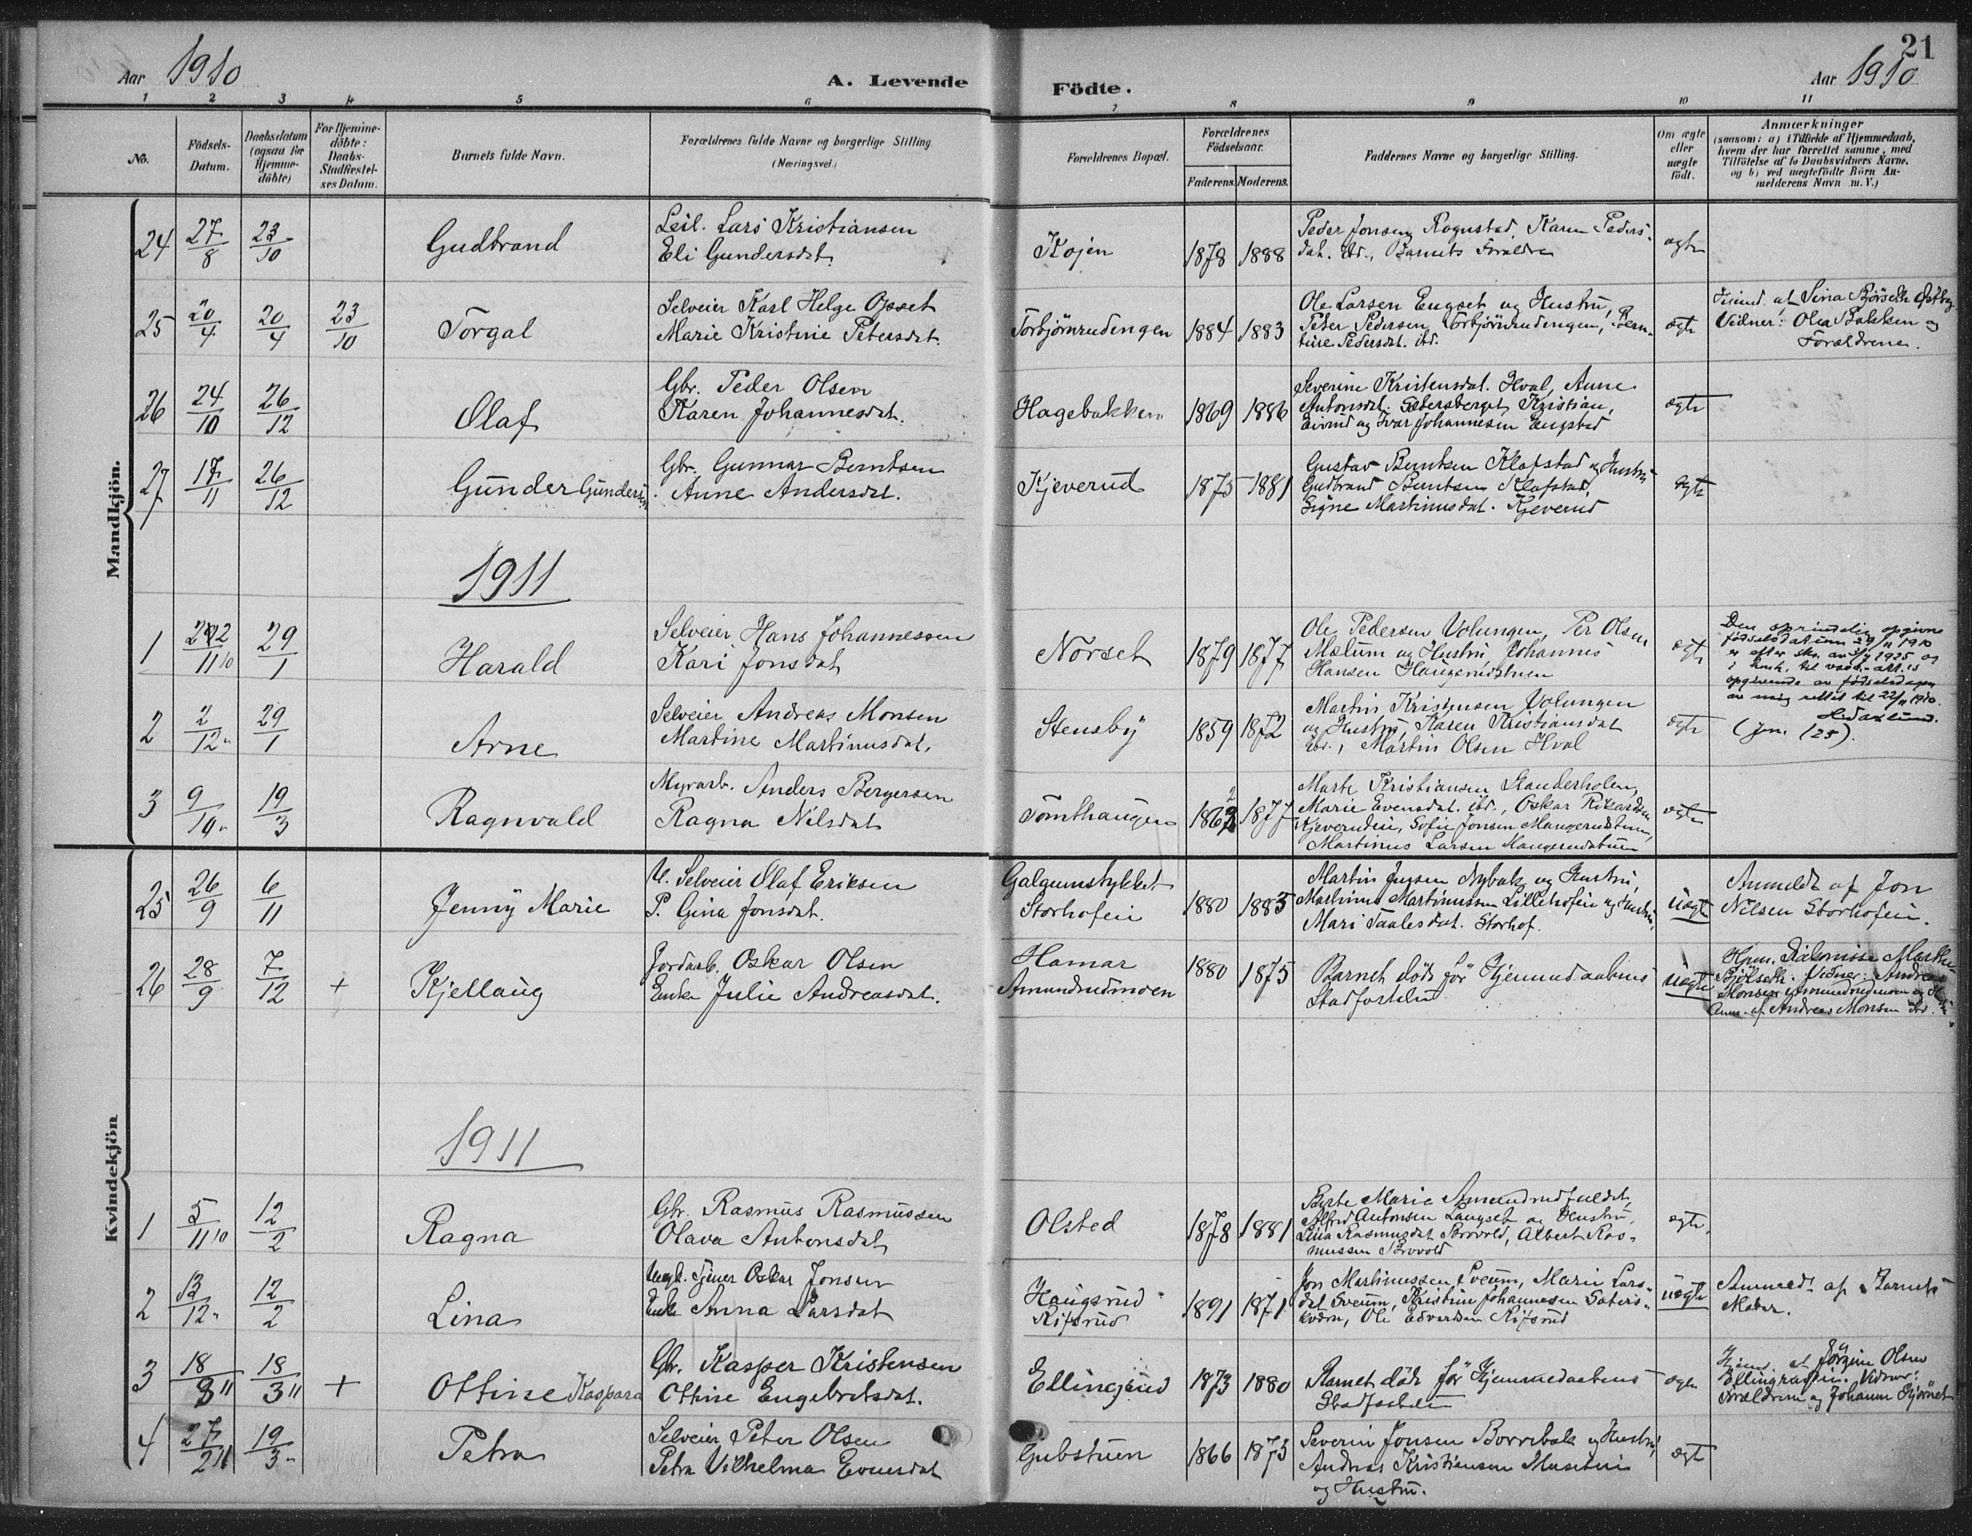 21
Aar 1910
A. Levende
Födte.
Aar 1910
1 2 3 4 5 6 7 8 9 10 11
No.
Födsels-Datum.
Daabsdatum (ogsaa for Hjemme-döbte)
For Hjemme-döbte: Daabs-Stadfæstelses Datum.
Barnets fulde Navn.
Forældrenes fulde Navne og borgerlige Stilling
(Næringsvei.)
Forældrenes Bopæl.
Forældrenes Födselsaar.
Faderens. Moderens.
Faddernes Navne og borgerlige Stilling.
Om ægte eller uægte födt.
Anmærkninger
(saasom: a) i Tilfælde af Hjemmedaab,
hvem der har forrettet samme, med
Tilföielse af to Daabsvidners Navne,
og b) ved uegtefödte Börn An-
melderens Navn m. V.)
Mandkjön.
24 27/8 23/10 Gudbrand
Leil. Lars Kristiansen
Eli Gundersdat.
Kojen 1878 1888
Peder Jonsen Rognstad, Karen Peders-
dat. ibd., Barnets Forældre
ægte
25 20/4 20/4 23/10 Torgal
Selveier Karl Helge Opset
Marie Kristine Petersdat.
Torbjörnrudengen 1884 1883
Ole Larsen Engset og Hustru,
Peter Pedersen Torbjörnrudengen, Bern-
tine Pedersdat. ibd.
ægte
Hjemd. af Lina Björseth Östby
Vidner: Olea Bakken og
Forældrene.
26 24/10 26/12 Olaf
Gbr. Peder Olsen
Karen Johannesdat.
Hagebakken 1869 1886
Severine Kristensdat. Hval, Anne
Antonsdat. Sætersberget, Kristian,
Eivind og Ivar Johannesen Engstad
ægte
27 17/11 26/12 Gunder Gundersen
Gbr. Gunnar Berntsen
Anne Andersdat.
Kjeverud 1875 1881
Gustav Berntsen Klafstad og Hustru
Gudbrand Berntsen Klafstad,
Signe Martinusdat. Kjeverud
ægte
1911
1 22/11 10 29/1 Harald
Selveier Hans Johannessen
Kari Jonsdat
Norset 1879 1877
Ole Pedersen Volungen, Per Olsen
Mælum og Hustru Johannes
Hansen Haugerudstuen
ægte
Den oprindelig opgivne
födselsdatum 29/11 1910
er efter skr. av 1925 og
i henh. til vacc.-att.s
opgivende av födselsdagen
av mig rettet til 22/11 1910.
(jrn. 125).
2 2/12 " 29/1 Arne
Selveier Andreas Monsen
Martine Martinusdat.
Stensby 1859 1872
Martin Kristensen Volungen
og Hustru, Karen Kristiansdat
ibd., Martin Olsen Hval
ægte
3 9/10 " 19/3 Ragnvald
Myrarb. Anders Bergersen
Ragna Nilsdat
Tomthaugen 1862 1877
Marte Kristiansen Standerholen,
Marie Evensdat. ibd., Oskar Rikardsen
Kjeverudsie, Sofie Jonsen Mangerudstuen,
Martinus Larsen Mangerudstuen
ægte
Kvindekjön
25 26/9 6/11 Jenny Marie
U. Selveier Olaf Eriksen
P. Gina Jonsdat.
Galgumstykket
Storhofen
1880 1883
Martin Jensen Nybak og Hustru,
Martinus Martinussen Lillehofen og Hustru,
Mari Paalesdat. Storhof.
uægte
Anmeldt af Jon
Nilsen Storhofen.
26 28/9 7/12 + Kjellaug
Jordarb. Oskar Olsen
Enke Julie Andreasdat.
Hamar
Amundrudmoen
1880 1875
Barnet döde för Hjemmedaabens
Stadfæstelse
uægte
Hjem. Vidner: Andreas
Monsen Amundrudmoen og
Anm. af Andreas Monsen ibd.
1911
1 5/11 10 12/2 Ragna
Gbr. Rasmus Rasmussen
Olava Antonsdat
Olsted 1878 1881
Berte Marie Amundrudfældet
Alfred Antonsen Langset og Hustru,
Lina Rasmusdat Strovold, Albert Ras-
mussen Strovold
ægte.
2 13/12 " 12/2 Lina
Ungk. Tjener Oskar Jonsen
Enke Anna Larsdat
Haugsrud
Rifsrud
1891 1871
Jon Martinussen Sveum, Marie Lars-
dat Sveum, Kristian Johannesen Sæters-
kværn, Ole Edvardsen Rifsrud
uægte
Anmeldt af Barnets
Moder.
3 18/3 11 18/3 11 + Ottine Kaspara
Gbr. Kasper Kristensen
Ottine Engebretsdat.
Ellingsrud 1873 1880
Barnet döde för Hjemmedaabens
Stadfæstelse
ægte
Hjemd. af Jörgine Olsen
Ellingrud. Vidner:
Forældrene og Johanne Kjörnet
4 27/2 11 19/3 " Petra
Selveier Peter Olsen
Petra Vilhelma Evensdat
Gubstuen 1866 1873
Severin Jonsen Borrebæk og Hustru,
Andreas Kristiansen Musetuen
og Hustru.
ægt